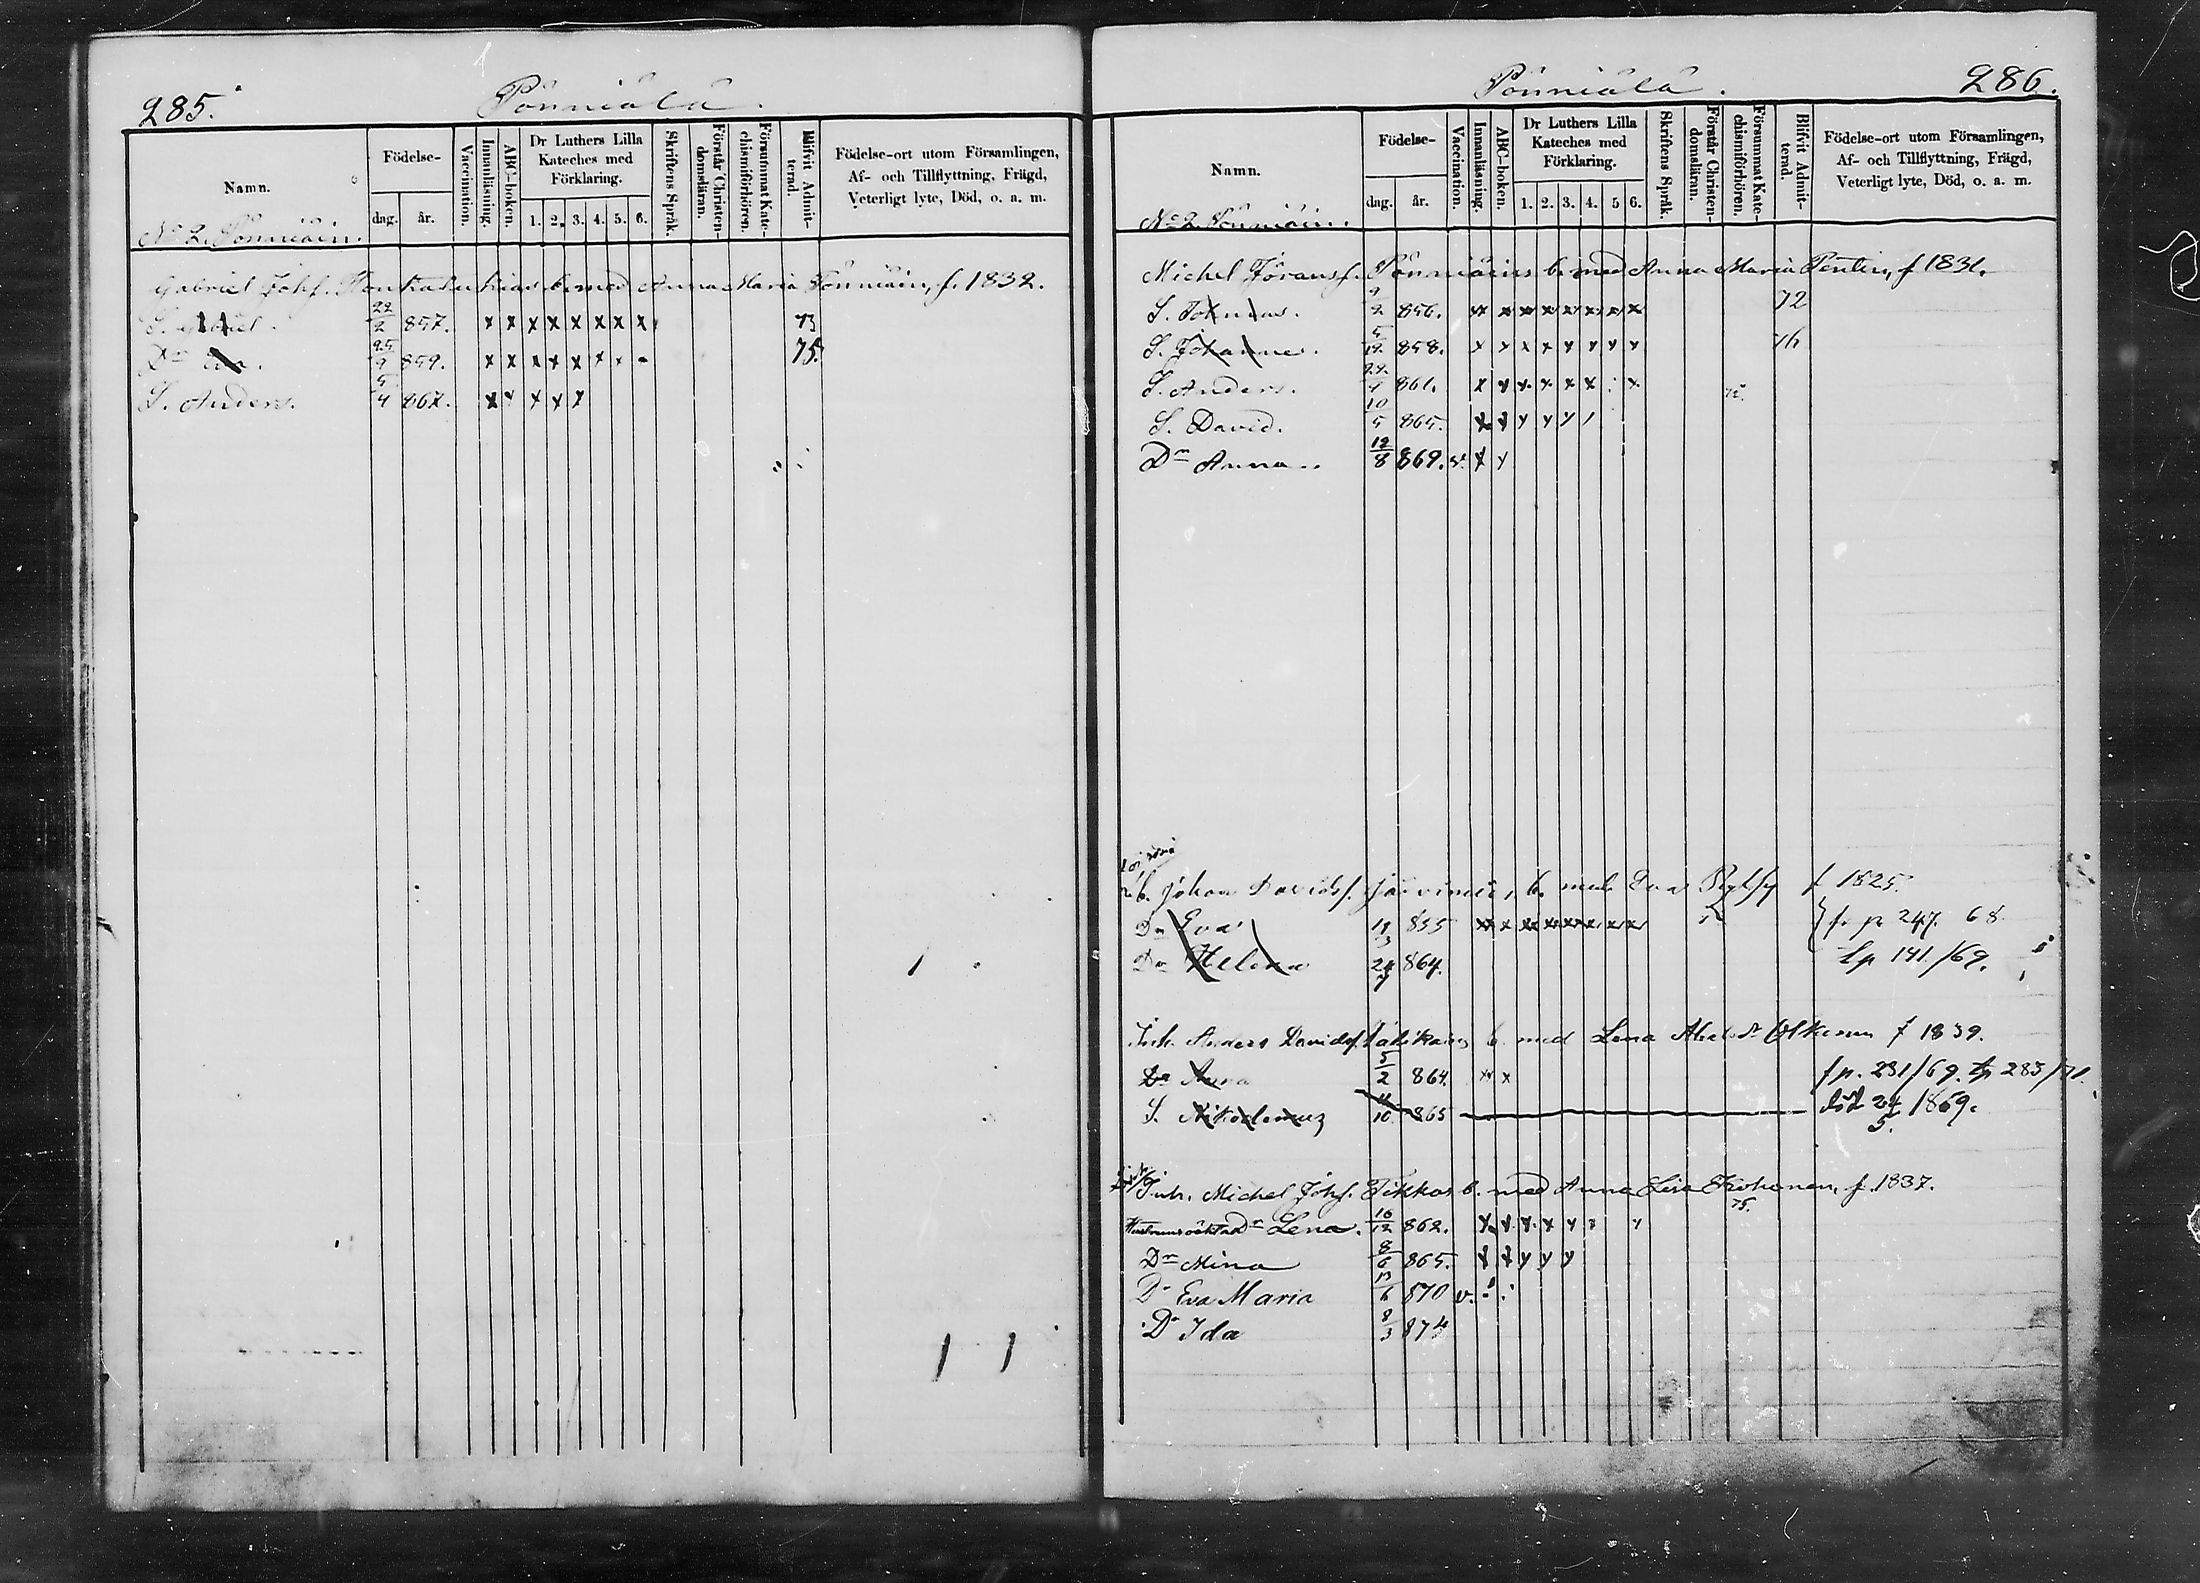 285.
Pönniälä.
Namn.
Födelse-
dag.
år.
Vaccination.
Innanläsning.
ABC-boken.
Dr Luthers Lilla Kateches med Förklaring.
1. 2. 3. 4. 5. 6.
Skriftens Språk.
Förstår Christendomsläran.
Försummat Katechismiförhören.
Blifvit Admitterad.
Födelse-ort utom Församlingen, Af- och Tillflyttning, Frägd, Veterligt lyte, Död, o. a. m.
No 2. Pönniäin.
Gabriel Johs. b. med Anna Maria Pönniäin, f. 1832.
S. Gabriel. 22/2 857. x x x x x x x x 73
Dr Eva. 25/9 859. x x x x x x x - 75.
S. Anders. 5/4 867. x x x x x
Pönniälä.
286.
Namn.
Födelse-
dag.
år.
Vaccination.
Innanläsning.
ABC-boken.
Dr Luthers Lilla Kateches med Förklaring.
1. 2. 3. 4. 5 6.
Skriftens Språk.
Förstår Christendomsläran.
Försummat Katechismiförhören.
Blifvit Admitterad.
Födelse-ort utom Församlingen, Af- och Tillflyttning, Frägd, Veterligt lyte, Död, o. a. m.
No 2. Pönniäin.
Michel Göranss. Pönniäinen b. med Anna Maria Pentin, f 1831.
S. Tomas. 9/2 856. x x x x x x x x 72
S. Johannes. 5/12 858. x x x x x x x x 76
S. Anders. 861. x x x x x x x
S. David. 10/5 865. x x x x x
Dr Anna. 12/8 869. v. x x
Johan Davids. b. med Eva f 1825.
Dr Eva 855 x x x x x x x x f. p 247. 68
Dr Helena 24/7 864. t p 141/69.
Inh. Anders Davids. b. med Lena f 1839.
Dr Anna 5/2 864. x x f p. 231/69. t p 285/71.
S. Nikodemus 865 död 24/5 1869.
Inh. Michel Johs. Tikkas b. med Anna Lisa f. 1837.
75.
Hustruns oäkta Dr Lena. 16/12 862. x x x x x x x
Dr Mina 8/6 865. x x x x x
Dr Eva Maria 13/6 870 v.
Dr Ida 8/3 874